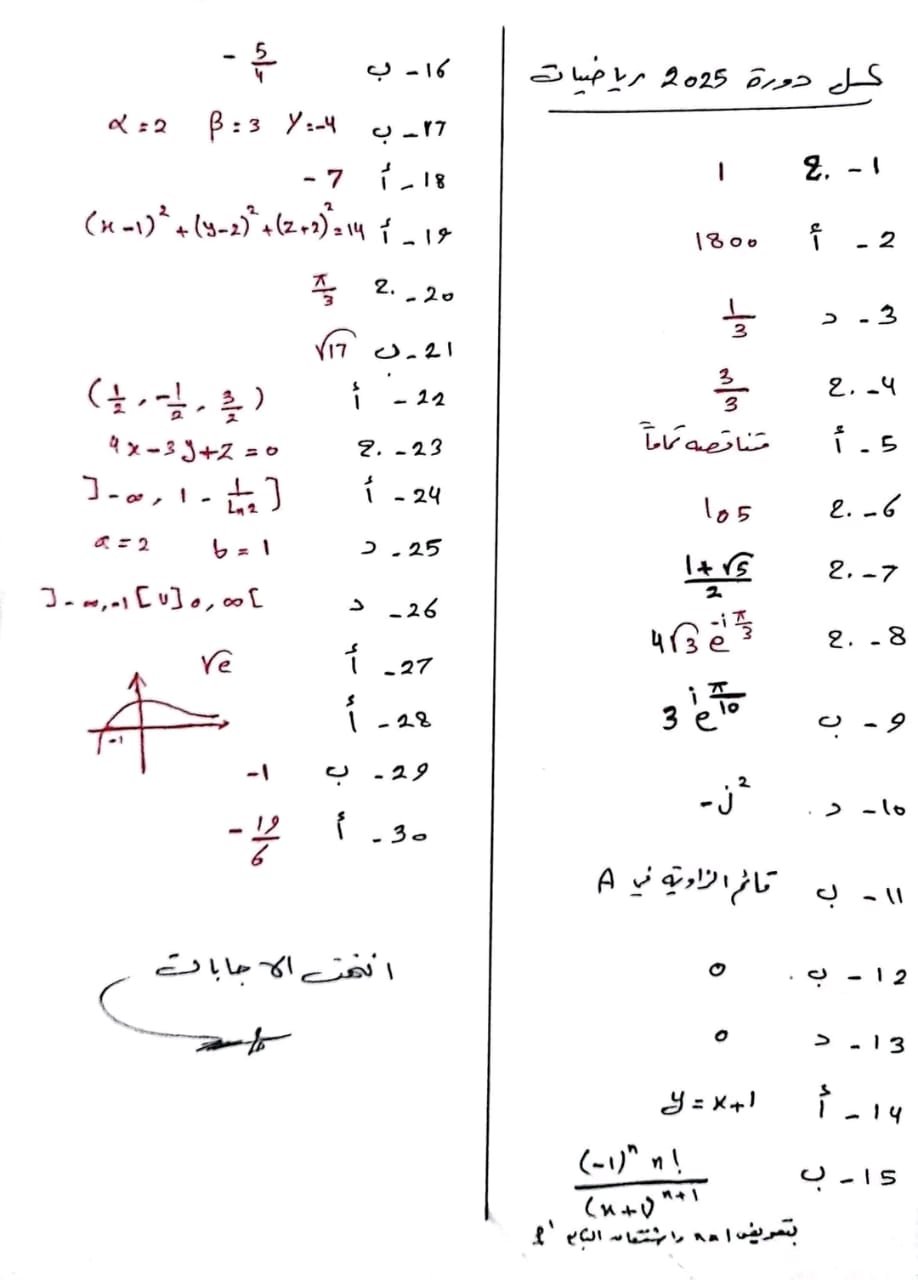 حل دورة 2025 رياضيات
1- ج. 1
2- أ 1800
3- د 1/3
4- ج. 3/3
5- أ متناقصة تماماً
6- ج. 105
7- ج. (1+√5)/2
8- ج. 4√3 e^(-i π/3)
9- ب 3 e^(i π/10)
10- د. -j²
11- ب قائم الزاوية في A
12- ب. 0
13- د 0
14- أ y = x+1
15- ب (-1)ⁿ n! / (x+1)ⁿ⁺¹
بتعويض n=1 واشتقاق التابع f'
16- ب - 5/4
17- ب α = 2 β = 3 γ = -4
18- أ - 7
19- أ (x-1)² + (y-2)² + (z+2)² = 14
20- ج. π/3
21- ب √17
22- أ (1/2 , -1/2 , 3/2)
23- ج. 4x-3y+z = 0
24- أ ]-∞ , 1 - 1/Ln2]
25- د a = 2 b = 1
26- د ]-∞,-1[ U ]0, ∞[
27- أ √e
28- أ
-1
29- ب -1
30- أ - 19/6
انتهت الاجابات